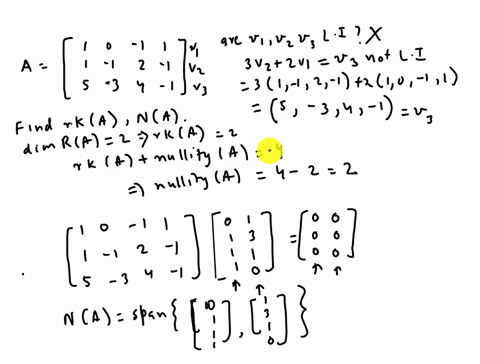 A = [ 1 0 -1 1 ] v1
[ 1 -1 2 -1 ] v2
[ 5 -3 4 -1 ] v3
are v1, v2 v3 L.I? X
3v2+2v1 = v3 not L.I
= 3(1,-1,2,-1)+2(1,0,-1,1)
= (5, -3, 4, -1) = v3
Find rk(A), N(A).
dim R(A)=2 ⇒ rk(A) = 2
rk(A) + nullity(A) = 4
⇒ nullity(A) = 4 - 2 = 2
[ 1 0 -1 1 ] [ 0 1 ] = [ 0 0 ]
[ 1 -1 2 -1 ] [ 1 3 ] [ 0 0 ]
[ 5 -3 4 -1 ] [ 1 1 ] [ 0 0 ]
[ 1 0 ]
↑ ↑ ↑ ↑
N(A) = span{ [ 0 1 1 1 ], [ 1 3 1 0 ] }